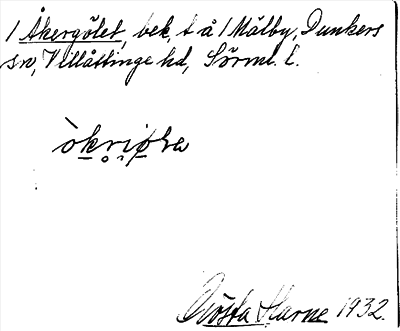 1 Åkergölet, bek. t å 1 Mälby, Dunkers
sn, Villåttinge hd, Sörml. l.
Gösta Harne 1932.